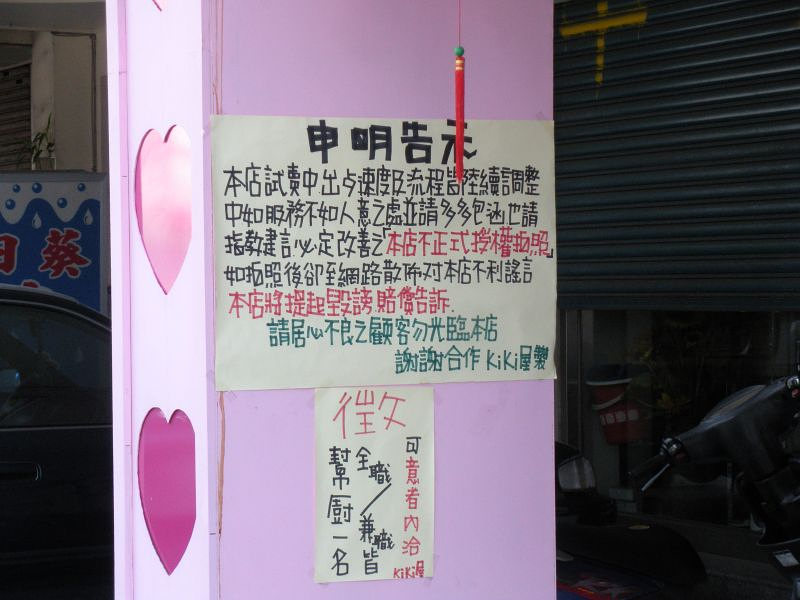 申明告示
本店試賣中出歺速度及流程皆陸續調整
中如服務不如人意之處並請多多包涵也請
指教建言必定改善之「本店不正式授權拍照」
如拍照後卻至網路散佈对本店不利謠言
本店將提起毀謗.賠償告訴.
請居心不良之顧客勿光臨本店
謝謝合作 KiKi屋製
徵
可意者內洽
KiKi屋
全職/兼職皆
幫廚一名
日葵